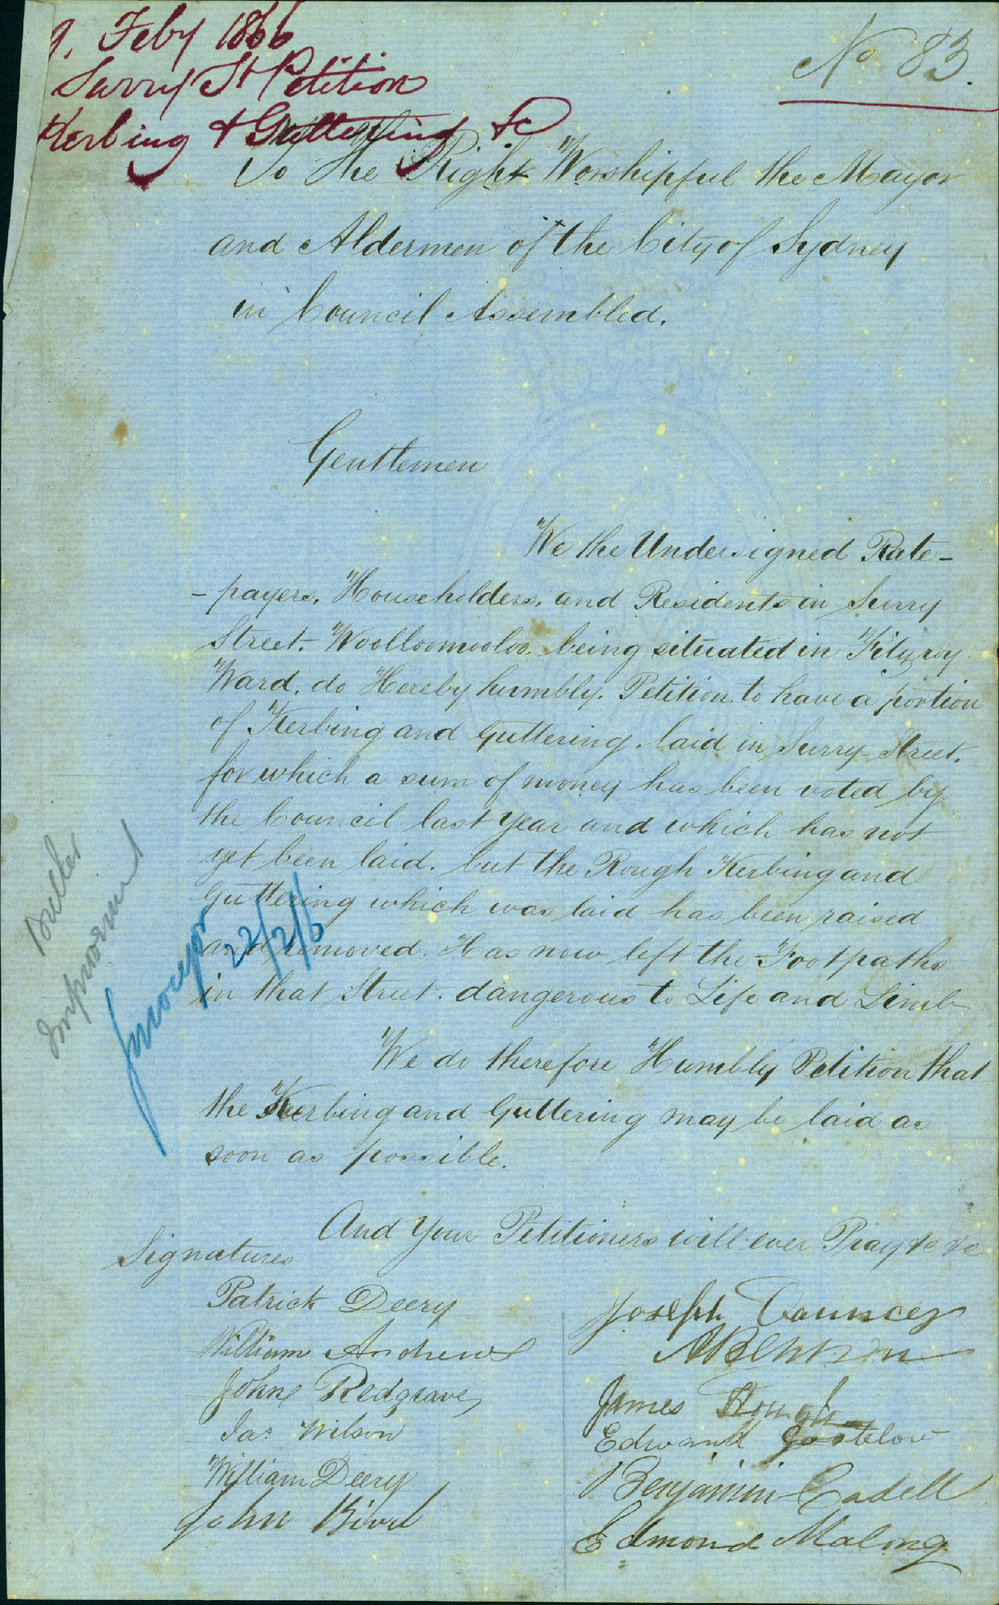 9, Feby 1866
Surry St Petition
Kerbing & Guttering &c
No 83.
To the Right Worshipful the Mayor
and Aldermen of the City of Sydney
in Council Assembled.
Gentlemen
We the Undersigned Rate-
-payers, Householders, and Residents in Surry
Street. Woolloomooloo. being situated in Fitzroy
Ward. do Hereby humbly. Petition. to have a portion
of Kerbing and Guttering. laid in Surry Street.
for which a sum of money has been voted by
the Council last year and which has not
yet been laid. but the Rough Kerbing and
Guttering which was laid has been raised
and removed. Has now left the Footpaths
in that Street. dangerous to Life and Limb
We do therefore Humbly Petition that
the Kerbing and Guttering may be laid as
soon as possible.
And Your Petitioners will ever Pray &c &c
Signatures
Patrick Deery
William Andrews
John Redgrave
Jas. Wilson
William Deery
John Bird
Joseph
James
Edward Gostelow
Benjamin Cadell
Edmond Malong
22/2/6